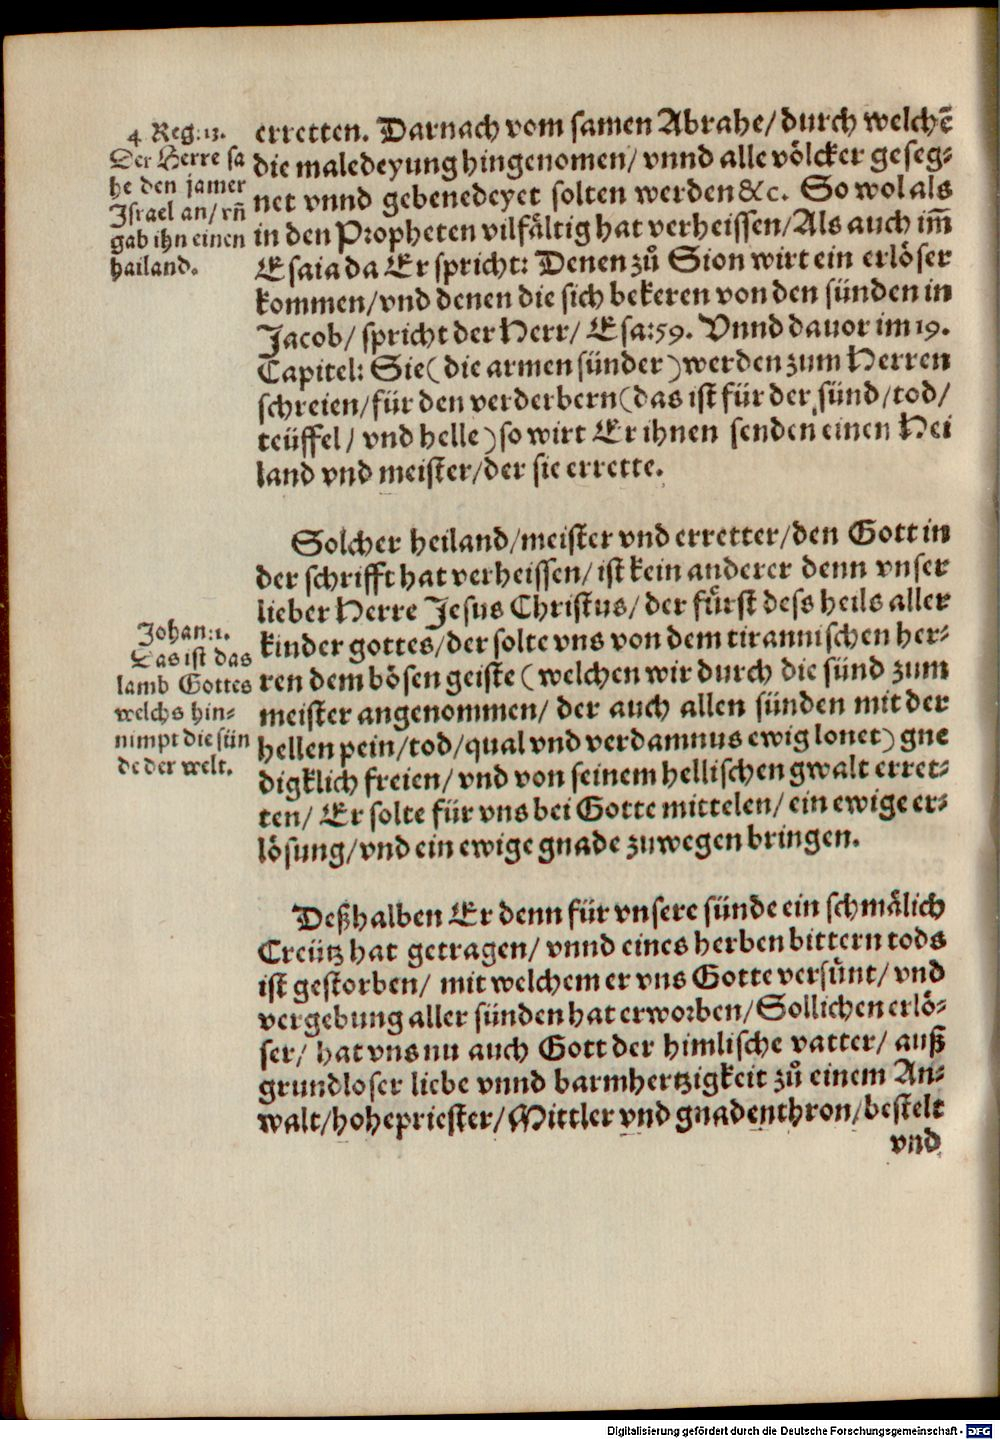 4 Reg: 13.
Der Herre sa
he den jamer
Israel an/ vñ
gab ihn einen
hailand.
erretten. Darnach vom samen Abrahe/ durch welchē
die maledeyung hingenomen/ vnnd alle völcker geseg⸗
net vnnd gebenedeyet solten werden &c. So wol als
in den Propheten vilfältig hat verheissen/ Als auch im̄
Esaia da Er spricht: Denen zů Sion wirt ein erlöser
kommen/ vnd denen die sich bekeren von den sünden in
Jacob/ spricht der Herr/ Esa: 59. Vnnd dauor im 19.
Capitel: Sie (die armen sünder) werden zum Herren
schreien/ für den verderbern (das ist für der sünd/ tod/
teüffel/ vnd helle) so wirt Er ihnen senden einen Hei
land vnd meister/ der sie errette.
Solcher heiland/ meister vnd erretter/ den Gott in
der schrifft hat verheissen/ ist kein anderer denn vnser
lieber Herre Jesus Christus/ der fürst dess heils aller
kinder gottes/ der solte vns von dem tirannischen her⸗
ren dem bösen geiste (welchen wir durch die sünd zum
meister angenommen/ der auch allen sünden mit der
hellen pein/ tod/ qual vnd verdamnus ewig lonet) gne
digklich freien/ vnd von seinem hellischen gwalt erret⸗
ten/ Er solte für vns bei Gotte mittelen/ ein ewige er⸗
lösung/ vnd ein ewige gnade zuwegen bringen.
Johan: 1.
Das ist das
lamb Gottes
welchs hin⸗
nimpt die sün
de der welt.
Deßhalben Er denn für vnsere sünde ein schmälich
Creütz hat getragen/ vnnd eines herben bittern tods
ist gestorben/ mit welchem er vns Gotte versünt/ vnd
vergebung aller sünden hat erworben/ Sollichen erlö⸗
ser/ hat vns nu auch Gott der himlische vatter/ auß
grundloser liebe vnnd barmhertzigkeit zů einem An⸗
walt/ hohepriester/ Mittler vnd gnadenthron/ bestelt
vnd
Digitalisierung gefördert durch die Deutsche Forschungsgemeinschaft - DFG